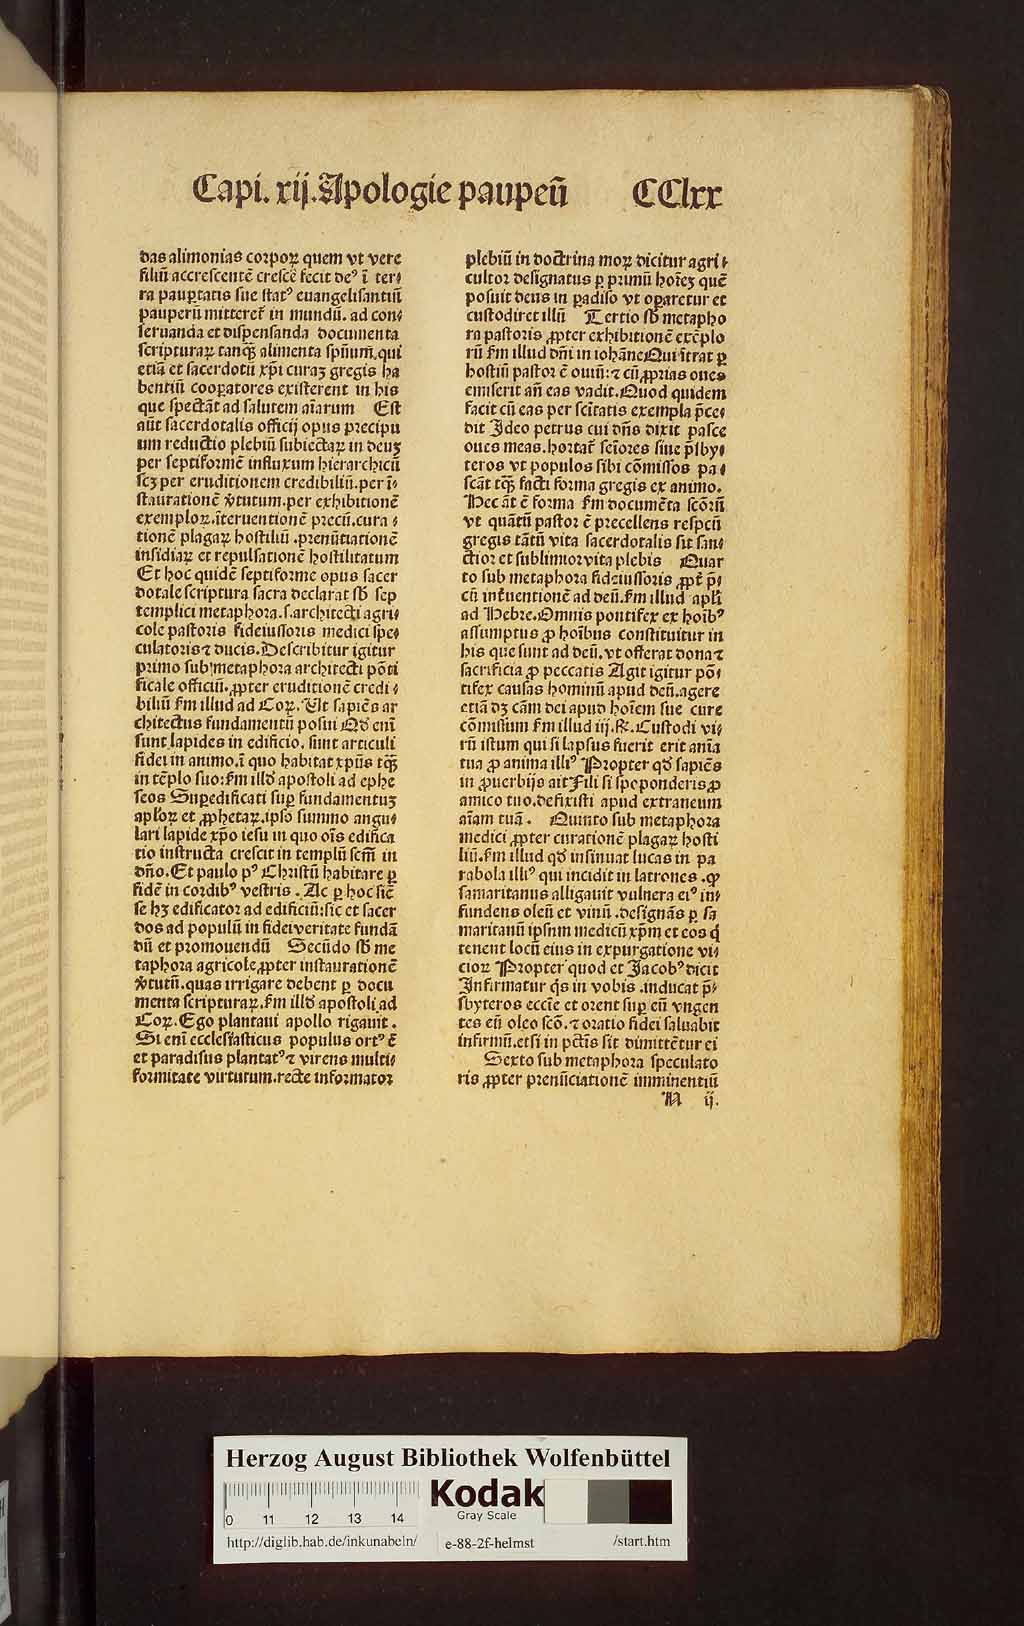 Capi. xij. Apologie paupeꝝ̄ CClxx
das alimonias corporꝝ quem vt vere
filiū accrescentē crescē fecit deꝰ ī ter⸗
ra paupertatis sue statꝰ euangelisantiū
pauperū mitteret̄ in mundū. ad con⸗
seruanda et dispensanda documenta
scripturaꝝ tanqꝫ alimenta spūum. qui
etiā et sacerdotū xp̄i curaꝫ gregis ha
bentiū cooꝑatores existerent in his
que spectāt ad salutem aīarum Est
aūt sacerdotalis officij opus precipu
um reductio plebiū subiectaꝝ in deuꝫ
per septiformē influxum hierarchicū
scꝫ per eruditionem credibiliū. per ī⸗
staurationē v̓tutum. per exhibitionē
exemploꝝ. īteruentionē precū. cura⸗
tionē plagaꝝ hostiliū. prenūtiationē
insidiaꝝ et repulsationē hostilitatum
Et hoc quidē septiforme opus sacer
dotale scriptura sacra declarat sb̄ sep
templici metaphora. s. architecti agri⸗
cole pastoris fideiussoris medici spe⸗
culatoris ⁊ ducis. Describitur igitur
primo sub metaphora architecti pōti
ficale officiū. ꝓpter eruditionē credi⸗
biliū fm illud ad Coꝝ. Vt sapiēs ar
chitectus fundamentū posui Qd̓ enī
sunt lapides in edificio. sunt articuli
fidei in animo. ī quo habitat xp̄us tꝗꝫ
in tēplo suo: fm illd̓ apostoli ad ephe
seos Suꝑedificati suꝑ fundamentuꝫ
apl̓oꝝ et ꝓphetaꝝ. ipso summo angu⸗
lari lapide xp̄o iesu in quo oīs edifica
tio instructa crescit in templū scm̄ in
dn̄o. Et paulo pꝰ Christū habitare ꝑ
fidē in cordibꝰ vestris. Ac ꝑ hoc sic̄
se hꝫ edificator ad edificiū: sic et sacer
dos ad populū in fidei veritate fundā
dū et promouendū Secūdo sb̄ me
taphora agricole ꝓpter instaurationē
v̓tutū. quas irrigare debent ꝑ docu
menta scripturaꝝ. fm illd̓ apostoli ad
Coꝝ. Ego plantaui apollo rigauit.
Si enī ecclesiasticus populus ortꝰ ē
et paradisus plantatꝰ ⁊ virens multi⸗
formitate virtutum. recte informator
plebiū in doctrina moꝝ dicitur agri⸗
cultor designatus ꝑ primū hoīeꝫ quē
posuit deus in ꝑadiso vt oꝑaretur et
custodiret illū Tertio sb̄ metapho
ra pastoris ꝓpter exhibitionē exēplo
rū fm illud dn̄i in iohāne Qui ītrat ꝑ
hostiū pastor ē ouiū: ⁊ cū ꝓprias oues
emiserit an̄ eas vadit. Quod quidem
facit cū eas per sc̄itatis exempla p̄ce⸗
dit Ideo petrus cui dn̄s dixit pasce
oues meas. hortat̄ sēiores siue p̄sby⸗
teros vt populos sibi cōmissos pa⸗
scāt tꝗꝫ facti forma gregis ex animo.
Hec āt ē forma fm documēta scōꝝū
vt quātū pastor ē precellens respcū
gregis tātū vita sacerdotalis sit san⸗
ctior et sublimior vita plebis Quar
to sub metaphora fideiussoris ꝓpt̄ p̄⸗
cū int̄uentionē ad deū. fm illud apl̓i
ad Hebre. Omnis pontifex ex hoībꝰ
assumptus ꝓ hoībus constituitur in
his que sunt ad deū. vt offerat dona ⁊
sacrificia ꝓ peccatis Agit igitur pō⸗
tifex causas hominū apud deū. agere
etiā dꝫ cām dei apud hoīem sue cure
cōmissum fm illud iij. R. Custodi vi⸗
rū istum qui si lapsus fuerit erit anīa
tua ꝓ anima illiꝰ Propter qd̓ sapiēs
in ꝓuerbijs ait Fili si spoponderis ꝓ
amico tuo. defixisti apud extraneum
aīam tuā. Quinto sub metaphora
medici ꝓpter curationē plagaꝝ hosti
liū. fm illud qd̓ insinuat lucas in pa
rabola illiꝰ qui incidit in latrones. ꝙ
samaritanus alligauit vulnera eiꝰ in⸗
fundens oleū et vinū. designās ꝑ sa
maritanū ipsum medicū xp̄m et eos q̇
tenent locū eius in expurgatione vi⸗
cioꝝ Propter quod et Jacobꝰ dicit
Infirmatur qs̄ in vobis. inducat p̄⸗
sbyteros eccīe et orent suꝑ eū vngen
tes eū oleo scō. ⁊ oratio fidei saluabit
infirmū. et si in pctīs sit dimittētur ei
Sexto sub metaphora speculato
ris ꝓpter prenūciationē imminentiū
N ij.
Herzog August Bibliothek Wolfenbüttel
0 11 12 13 14
Kodak
Gray Scale
http://diglib.hab.de/inkunabeln/ e-88-2f-helmst /start.htm